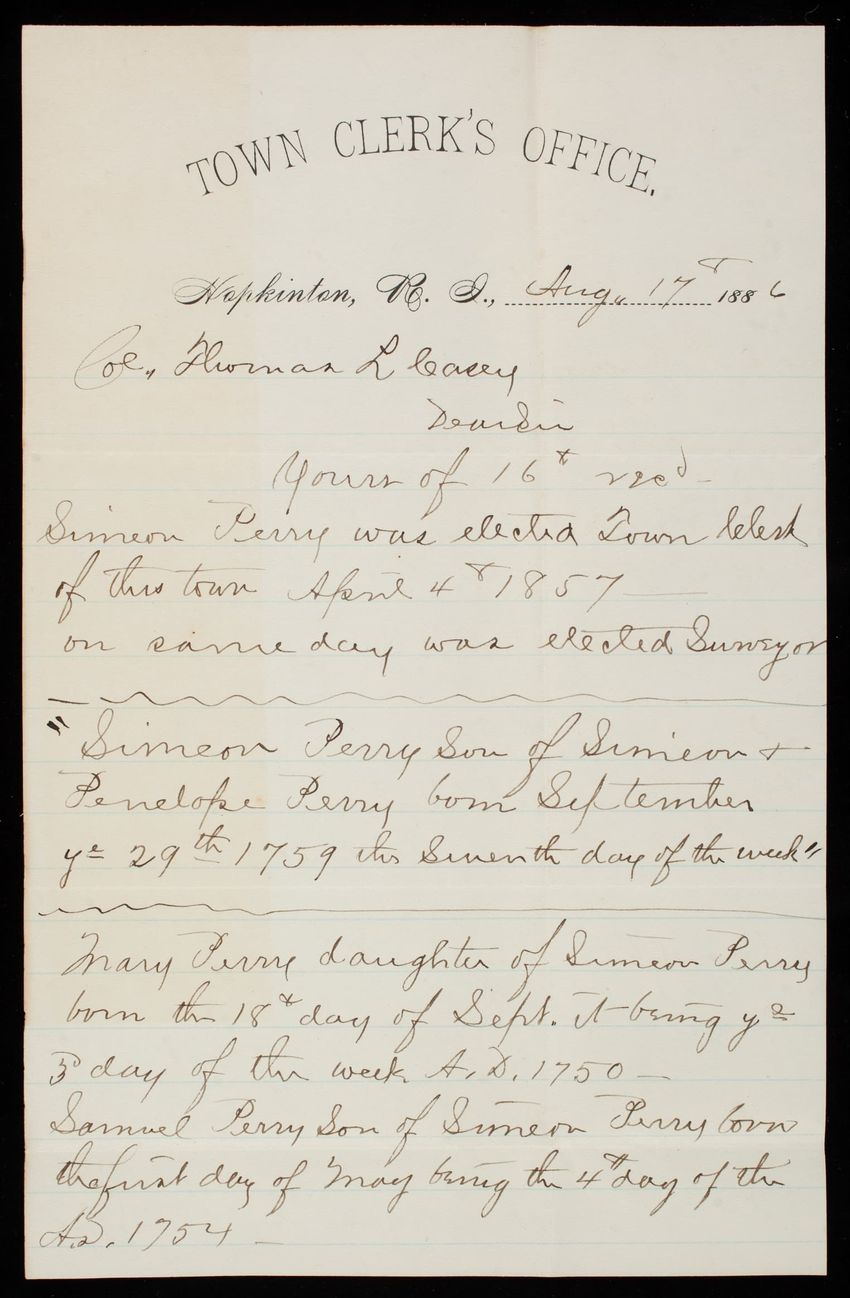 TOWN CLERK'S OFFICE.
Hopkinton, R. I., Aug. 17th 1886
Col. Thomas L Casey
Dear Sir
Yours of 16th recd -
Simeon Perry was elected Town Clerk
of this town April 4th 1857 —
on same day was elected Surveyor
"Simeon Perry Son of Simeon +
Penelope Perry born September
ye 29th 1759 the Seventh day of the week"
Mary Perry daughter of Simeon Perry
born the 18th day of Sept. it being ye
3d day of the week A.D. 1750 —
Samuel Perry Son of Simeon Perry born
the first day of May being the 4th day of the
A.D. 1754 —